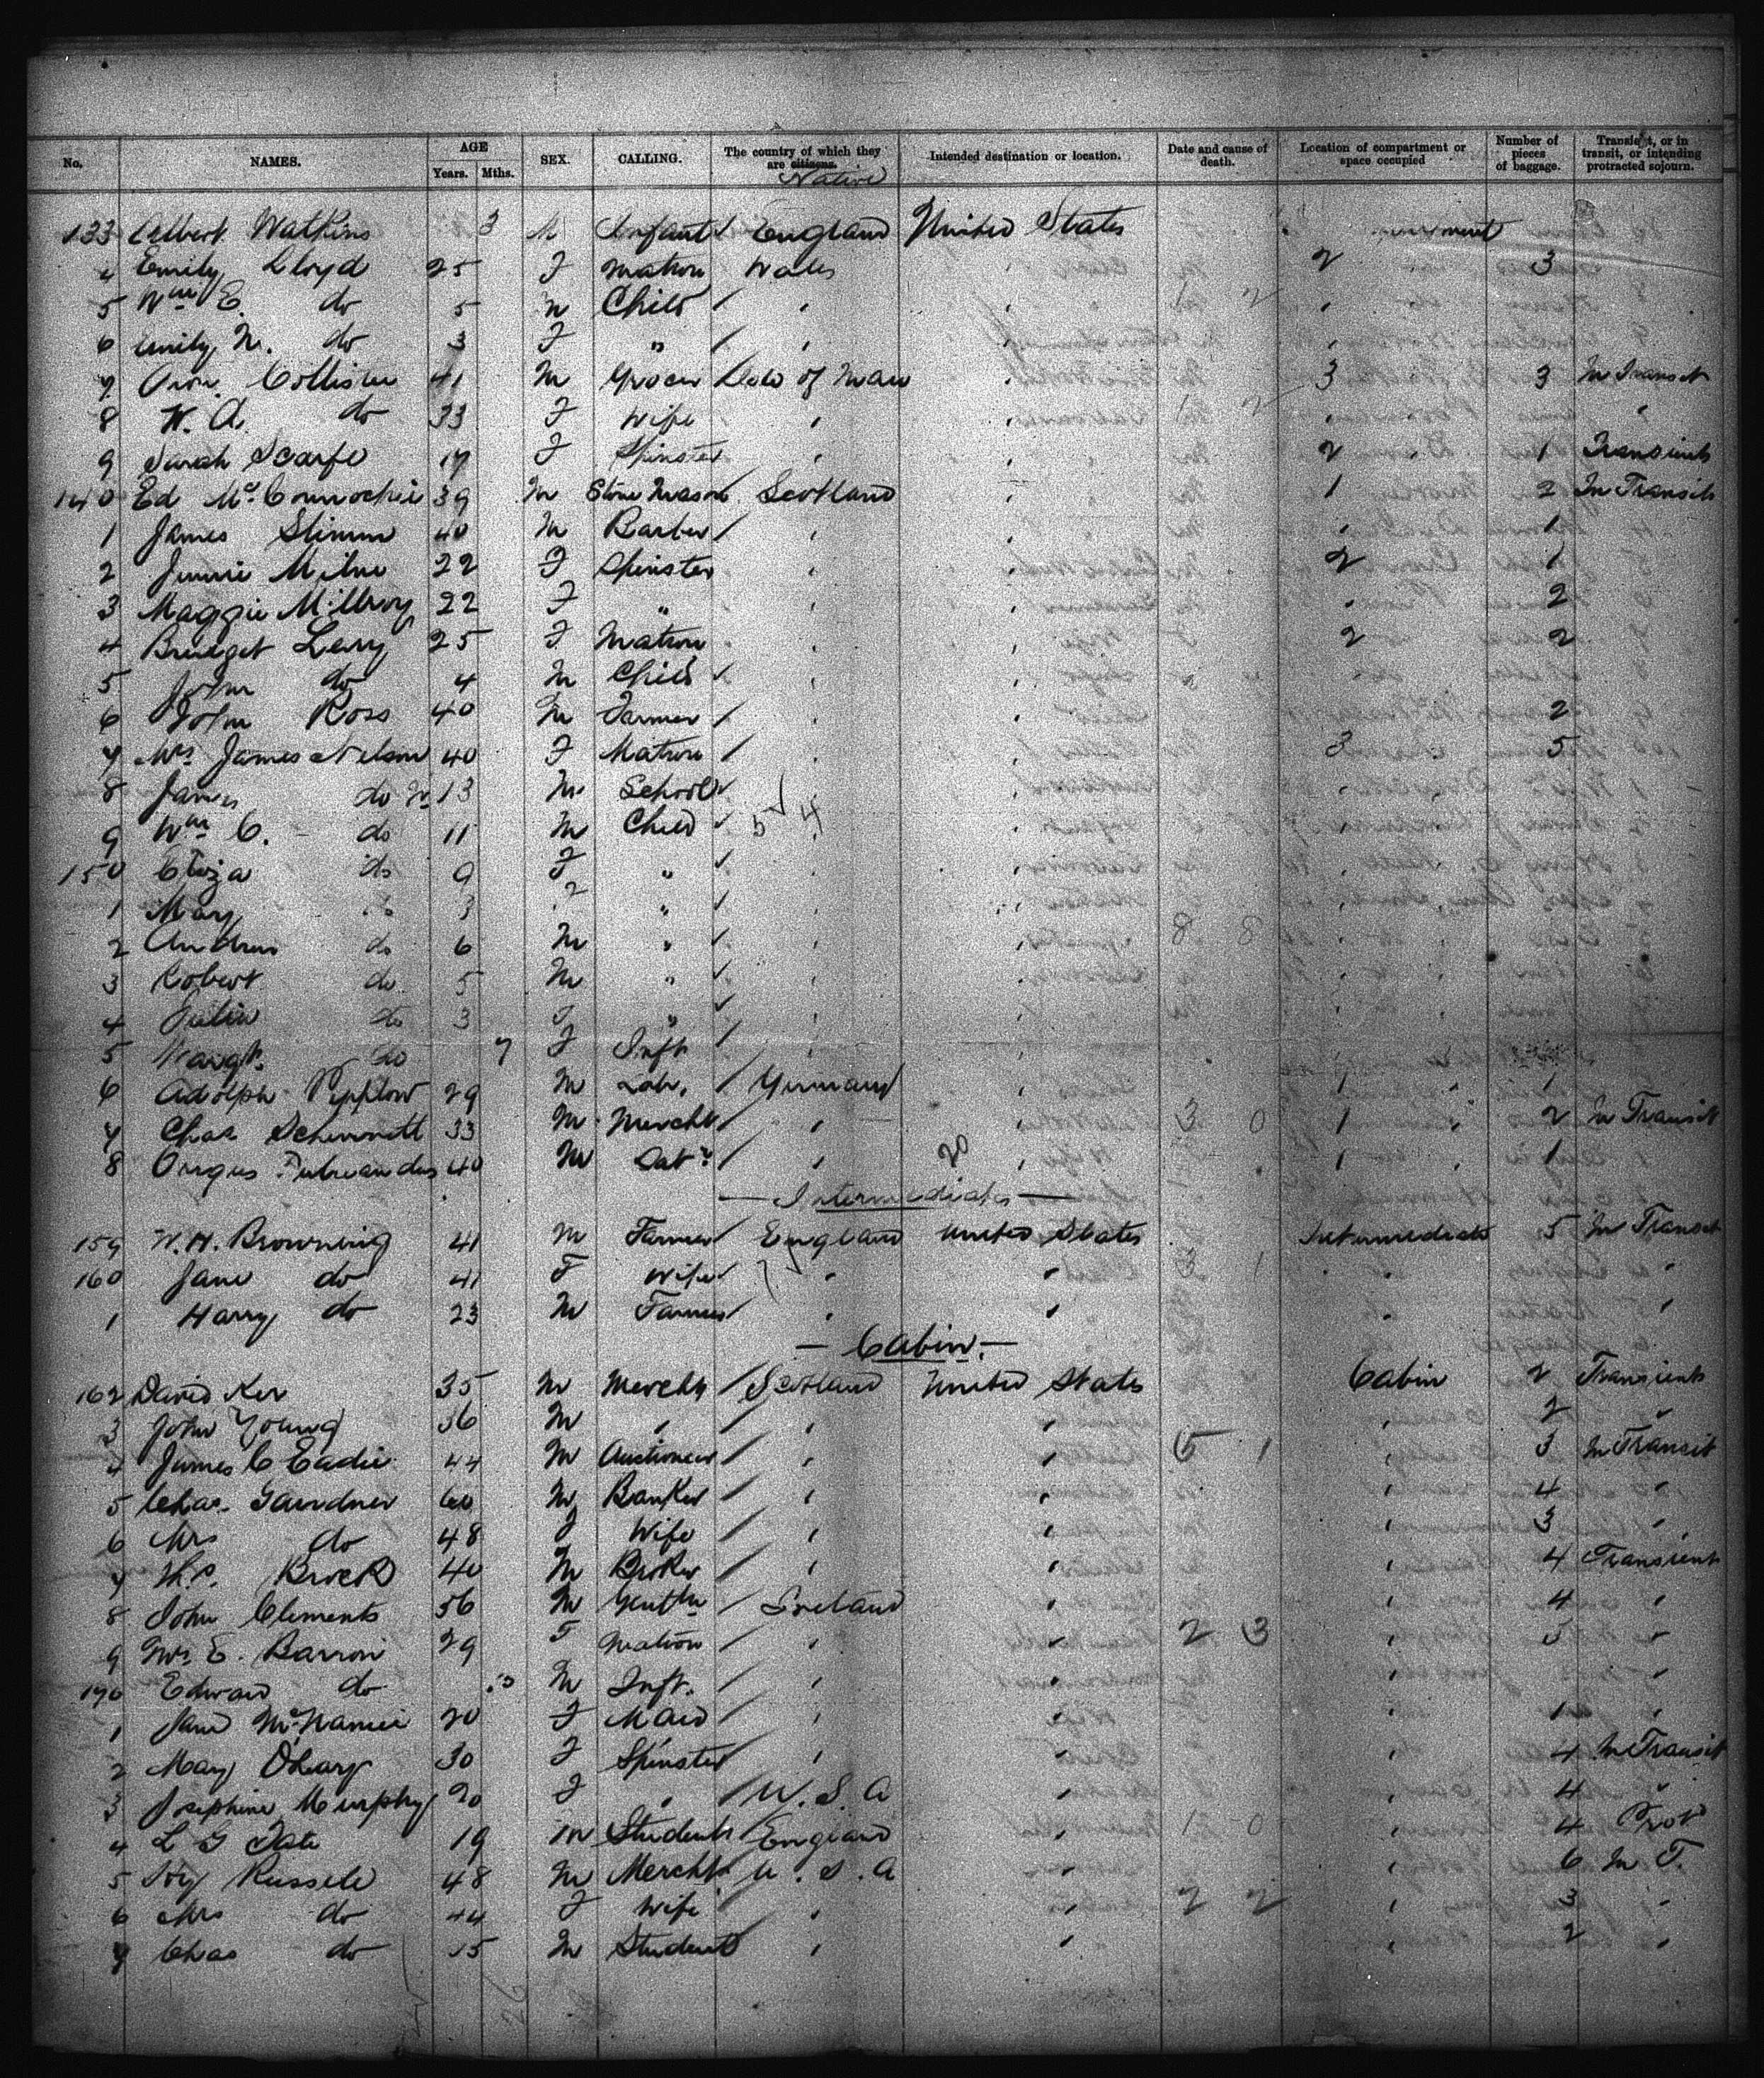 No. NAMES. AGE Years. Mths. SEX. CALLING. The country of which they are citizens. Native Intended destination or location. Date and cause of death. Location of compartment or space occupied Number of pieces of baggage. Transient, or in transit, or intending protracted sojourn.
133 Albert Watkins 3 M Infant England United States
4 Emily Lloyd 25 F Matron Wales 2 3
5 Wm E. do 5 M Child
6 Emily M. do 3 F "
7 Collister 41 M Grocer Isle of Man 3 3 In Transit
8 W. A. do 33 F Wife
9 Sarah Scarfe 17 F Spinster 2 1 Transient
140 Ed McConnochie 39 M Stone Mason Scotland 1 2 In Transit
1 James Slimm 40 M Barber 1
2 Jennie Milne 22 F Spinster 2 1
3 Maggie Millroy 22 F " 2
4 Bridget Leary 25 F Matron 2 2
5 John do 4 M Child
6 John Ross 40 M Farmer 2
7 Mrs James Nelson 40 F Matron 3 5
8 James do 13 M School
9 Wm C. do 11 M Child
150 Eliza do 9 F "
1 Mary do F "
2 Andrew do 6 M "
3 Robert do 5 M "
4 do 3 F "
5 Margt. do 7 F Inft
6 Adolph Pepplow 29 M Lab. Germany 1 1
7 Chas 33 M Mercht 1 2 In Transit
8 40 M Labr 1 1
— Intermediates —
159 W. H. Browning 41 M Farmer England United States Intermediate 5 In Transit
160 Jane do 41 F Wife
1 Harry do 23 M Farmer
— Cabin. —
162 David Ker 35 M Mercht Scotland United States Cabin 2 Transient
3 John Young 36 M 2
4 James C Eadie 44 M Auctioneer 3 In Transit
5 Chas. Gairdner 60 M Banker 4
6 Mrs do 48 F Wife 3
7 Brock 40 M Broker 4 Transient
8 John Clements 56 M Gentln Ireland 4
9 Mrs E. Barron 29 F Matron 5
170 Edward do M Inft.
1 Jane McNamee 20 F Maid 1
2 Mary OLeary 30 F Spinster 4 In Transit
3 Josephine Murphy 20 F U. S. A 4
4 L G Tate 19 M Student England 4 Prot
5 Hy Russell 48 M Mercht U. S. A 6 In T.
6 Mrs do 44 F Wife 3
7 Chas do 15 M Student 2